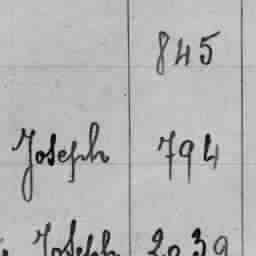 845
Joseph 794
Joseph 2039